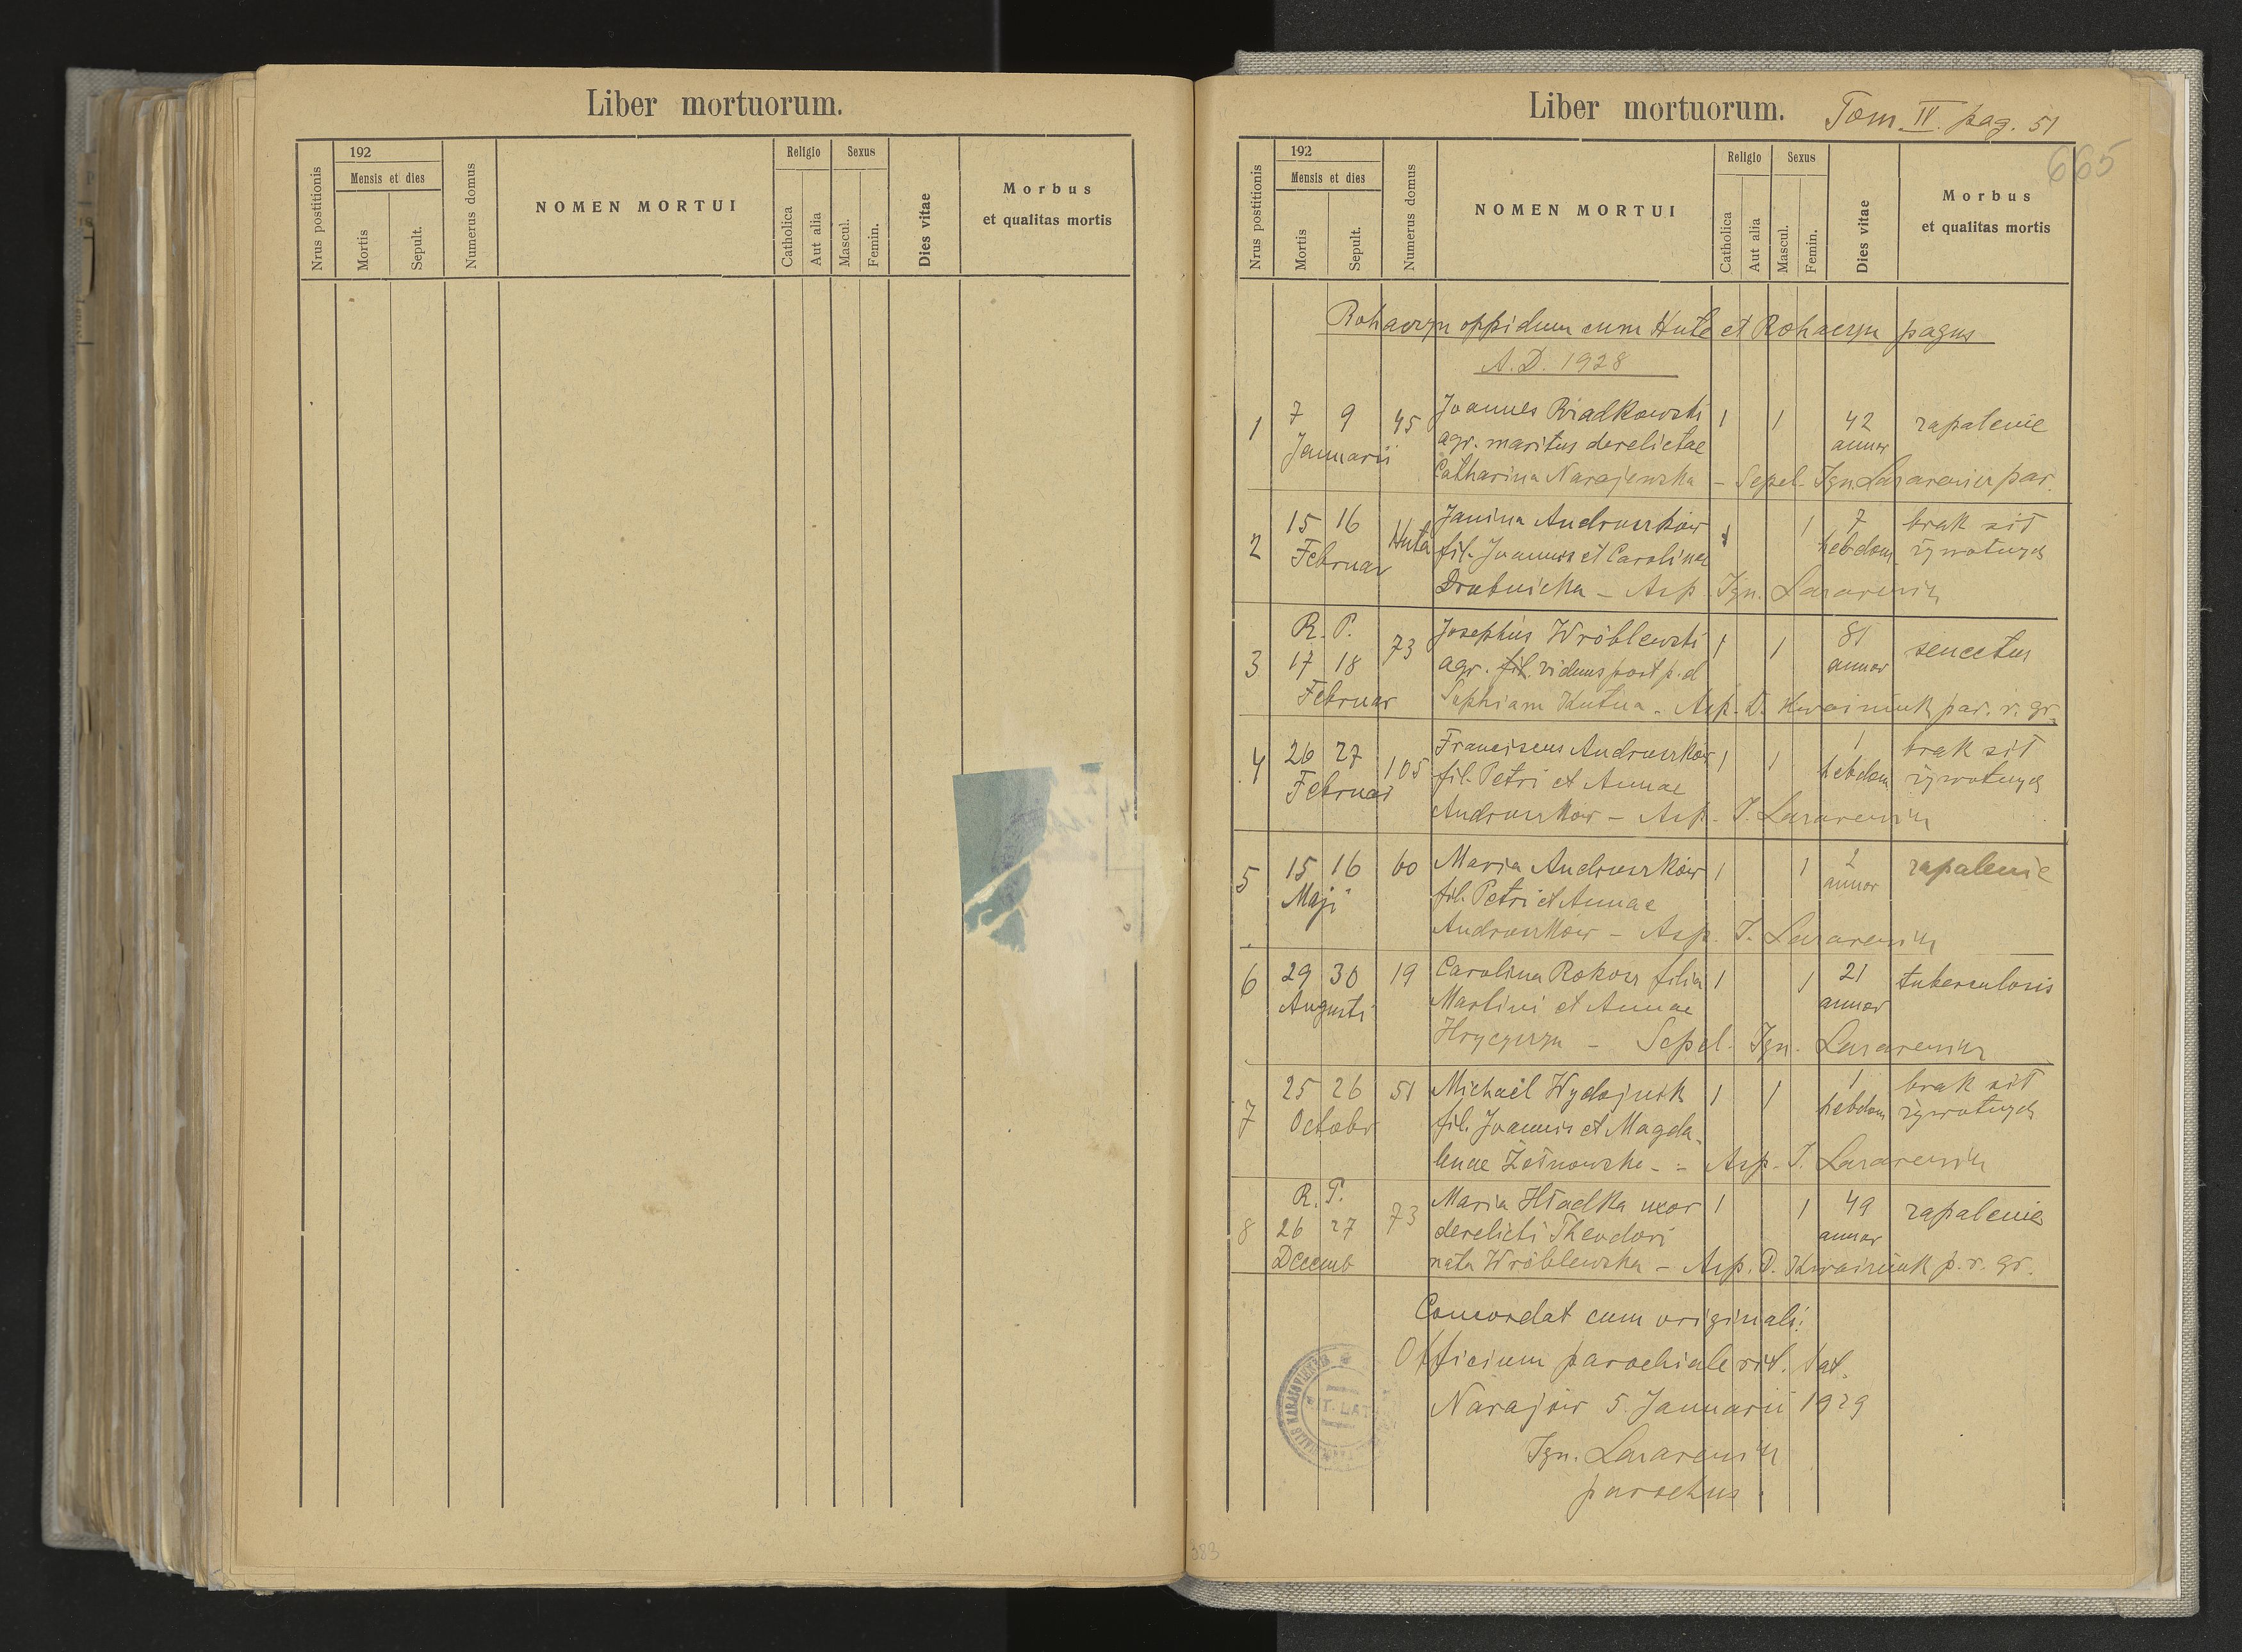 Liber mortuorum.
Nrus postitionis
192
Mensis et dies
Mortis
Sepult.
Numerus domus
NOMEN MORTUI
Religio
Catholica
Aut alia
Sexus
Mascul.
Femin.
Dies vitae
Morbus
et qualitas mortis
Liber mortuorum. Tom. IV. pag. 51
665
Nrus postitionis
192
Mensis et dies
Mortis
Sepult.
Numerus domus
NOMEN MORTUI
Religio
Catholica
Aut alia
Sexus
Mascul.
Femin.
Dies vitae
Morbus
et qualitas mortis
Rohaczyn oppidum cum Huta et Rohaczyn pagus
A. D. 1928
1 7 9 45 Joannes 1 1 42 zapalenie
Januarii agr. maritus derelictae annor
Catharina Narajewska - Sepel. Ign. Lazarewicz par.
2 15 16 Huta Janina Andruszków 1 1 7 brak sił
Februar fil. Joannis et Carolinae hebdom. żywotnych
Drabnicka - Asp. Ign. Lazarewicz
R. P.
3 17 18 73 Josephus Wróblewski 1 1 81 senectus
Februar agr. fil. viduus post p. d annor
Sophiam Kutna - Asp. par. r. gr.
4 26 27 105 Franciscus Andruszków 1 1 1 brak sił
Februar fil. Petri et Annae hebdom żywotnych
Andruszków - Asp. I. Lazarewicz
5 15 16 60 Maria Andruszków 1 1 2 zapalenie
Maji fil. Petri et Annae annor
Andruszków - Asp. I. Lazarewicz
6 29 30 19 Carolina Rokosz filia 1 1 21 tuberculosis
Augusti Martini et Annae annor
Hrycyszyn - Sepel. Ign. Lazarewicz
7 25 26 51 Michaël 1 1 1 brak sił
Octobr fil. Joannis et Magda- hebdom żywotnych
lenae Żołnowska - Asp. I. Lazarewicz
R. P.
8 26 27 73 Maria Hładka uxor 1 1 49 zapalenie
Decemb derelicti Theodori annor
nata Wróblewska - Asp. p. r. gr.
Concordat cum originali:
Officium parochiale rit. lat.
Narajów 5. Januarii 1929
Ign. Lazarewicz
parochus.
383